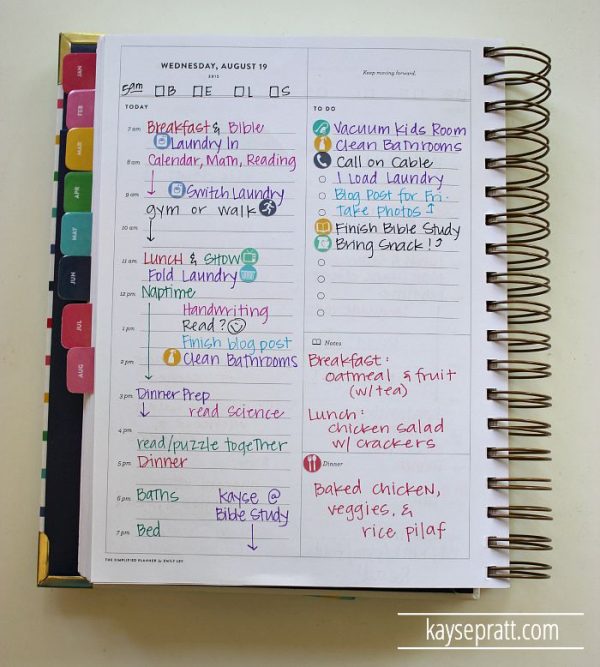 WEDNESDAY, AUGUST 19
2015
5am □B □E □L □S
Keep moving forward.
TODAY
7 am Breakfast & Bible
Laundry In
8 am Calendar, Math, Reading
9 am Switch Laundry
gym or walk
10 am
11 am Lunch & Show
Fold Laundry
12 pm Naptime
Handwriting
1 pm Read?
Finish blog post
2 pm Clean Bathrooms
3 pm Dinner Prep
read science
4 pm
read/puzzle together
5 pm Dinner
6 pm Baths kayse @
Bible Study
7 pm Bed
THE SIMPLIFIED PLANNER by EMILY LEY
TO DO
Vacuum Kids Room
Clean Bathrooms
Call on Cable
1 Load Laundry
Blog Post for Fri.
Take Photos
Finish Bible Study
Bring Snack!
Notes
Breakfast:
oatmeal & fruit
(w/tea)
Lunch:
chicken salad
w/ crackers
Dinner
Baked chicken,
veggies, &
rice pilaf
JAN
FEB
MAR
APR
MAY
JUN
JUL
AUG
kaysepratt.com